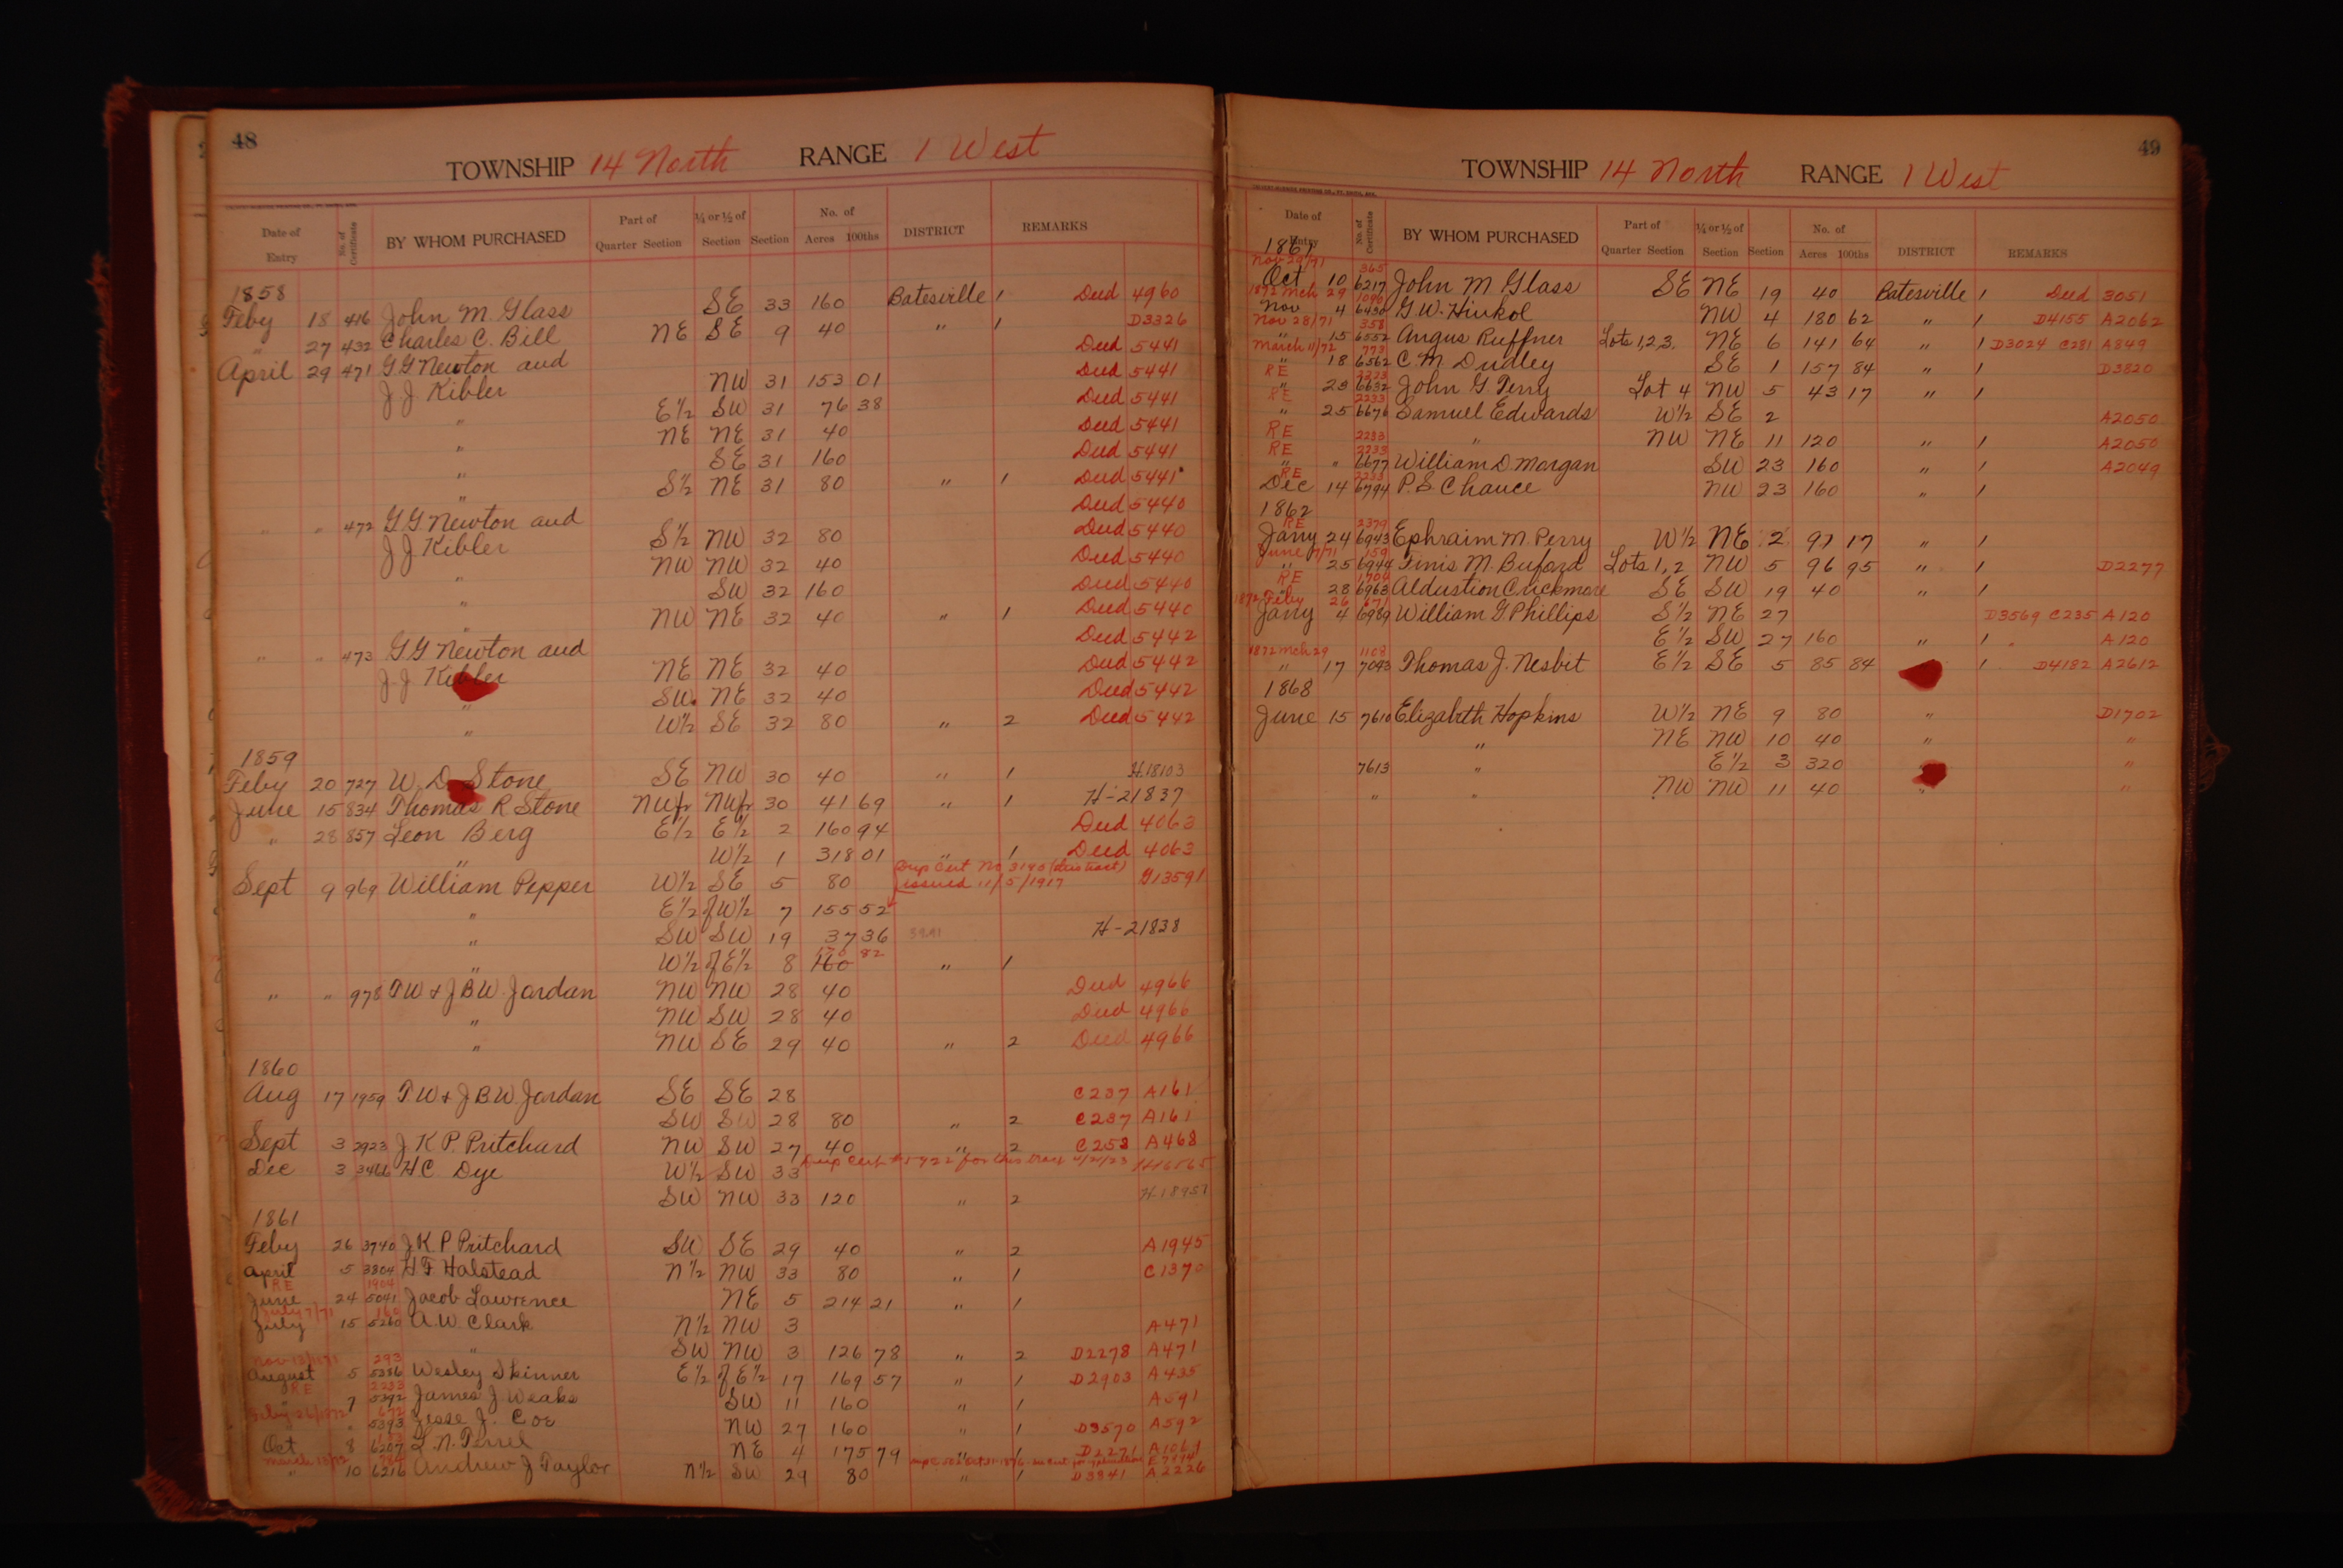 48
TOWNSHIP 14 North RANGE 1 West
Date of Entry No. of Certificate BY WHOM PURCHASED Part of Quarter Section ¼ or ½ of Section Section No. of Acres 100ths DISTRICT REMARKS
1858
Feby 18 416 John M. Glass SE 33 160 Batesville 1 Deed 4960
" 27 432 Charles C. Bill NE SE 9 40 " 1 D3326
April 29 471 G G Newton and Deed 5441
J. J Kibler NW 31 153 01 Deed 5441
" E½ SW 31 76 38 Deed 5441
" NE NE 31 40 Deed 5441
" SE 31 160 Deed 5441
" S½ NE 31 80 " 1 Deed 5441
Deed 5440
" " 472 G G Newton and Deed 5440
J J Kibler S½ NW 32 80 Deed 5440
" NW NW 32 40 Deed 5440
" SW 32 160 Deed 5440
" NW NE 32 40 " 1 Deed 5442
" " 473 G G Newton and Deed 5442
J. J Kibler NE NE 32 40 Deed 5442
" SW NE 32 40 Deed 5442
" W½ SE 32 80 " 2
1859
Feby 20 727 W. D. Stone SE NW 30 40 " 1 H.18103
June 15 834 Thomas R Stone NWfr NWfr 30 41 69 " 1 H-21837
" 28 857 Leon Berg E½ E½ 2 160 94 Deed 4063
" W½ 1 318 01 " 1 Deed 4063
Dup Cert No 3195 (this tract)
Sept 9 969 William Pepper W½ SE 5 80 issued 11/5/1917 G13591
" E½ of W½ 7 155 52
" SW SW 19 37 36 H-21838
" W½ of E½ 8 160 82 " 1
" " 978 T W & J B W Jordan NW NW 28 40 Deed 4966
" NW SW 28 40 Deed 4966
" NW SE 29 40 " 2 Deed 4966
1860
Aug 17 1959 T. W & J B W Jordan SE SE 28 C237 A161
SW SW 28 80 " 2 C237 A161
Sept 3 2923 J. K P. Pritchard NW SW 27 40 " 2 C253 A468
Dec 3 3466 H C Dye W½ SW 33 Dup Cert for this tract
SW NW 33 120 " 2 H-18957
1861
Feby 26 3740 J K P Pritchard SW SE 29 40 " 2 A1945
April 5 3804 H. F Halstead N½ NW 33 80 " 1 C1370
RE 1904
June 24 5041 Jacob Lawrence NE 5 214 21 " 1
July 7/71 160
July 15 5260 A. W. Clark N½ NW 3 A471
" SW NW 3 126 78 " 2 D2278 A471
293
August 5 5356 Wesley Skinner E½ of E½ 17 169 57 " 1 D2903 A435
RE 2233
" 7 5392 James J Weaks SW 11 160 " 1 A591
Feby 26/1872 672
" 5393 Jesse J. Coe NW 27 160 " 1 D3570 A592
Oct 8 6207 L. N. Terrel NE 4 175 79 " 1 D2271
March 13/72 784
" 10 6216 Andrew J Taylor N½ SW 29 80 " 1 D3841 A2226
49
TOWNSHIP 14 North RANGE 1 West
Date of Entry No. of Certificate BY WHOM PURCHASED Part of Quarter Section ¼ or ½ of Section Section No. of Acres 100ths DISTRICT REMARKS
1861
Nov 29/71 365
Oct 10 6217 John M Glass SE NE 19 40 Batesville 1 Deed 3051
1872 Mch 29 1096
Nov 4 6430 G. W. Hinkol NW 4 180 62 " 1 D4155 A2062
Nov 28/71 358
" 15 6552 Angus Ruffner Lots 1,2,3, NE 6 141 64 " 1 D3024 C281 A849
March 11/72 773
" 18 6562 C. M Dudley SE 1 157 84 " 1 D3820
RE 2223
" 23 6632 John G Terry Lot 4 NW 5 43 17 " 1
RE 2233
" 25 6676 Samuel Edwards W½ SE 2 A2050
RE 2233
" NW NE 11 120 " 1 A2050
RE 2233
" " 6677 William D. Morgan SW 23 160 " 1 A2049
RE 2233
Dec 14 6794 P. S Chance NW 23 160 " 1
1862
RE 2379
Jany 24 6943 Ephraim M. Perry W½ NE 2 97 17 " 1
June 7/71 159
" 25 6944 Finis M. Buford Lots 1, 2 NW 5 96 95 " 1 D2277
RE 1704
" 28 6963 Aldustion Cuckmore SE SW 19 40 " 1
1872 Feby 26 671
Jany 4 6989 William G. Phillips S½ NE 27 D3569 C235 A120
E½ SW 27 160 " 1 A120
1872 Mch 29 1108
" 17 7093 Thomas J. Nesbit E½ SE 5 85 84 1 D4182 A2612
1868
June 15 7610 Elizabeth Hopkins W½ NE 9 80 " D1702
" NE NW 10 40 " "
7613 " E½ 3 320 "
" " NW NW 11 40 " "